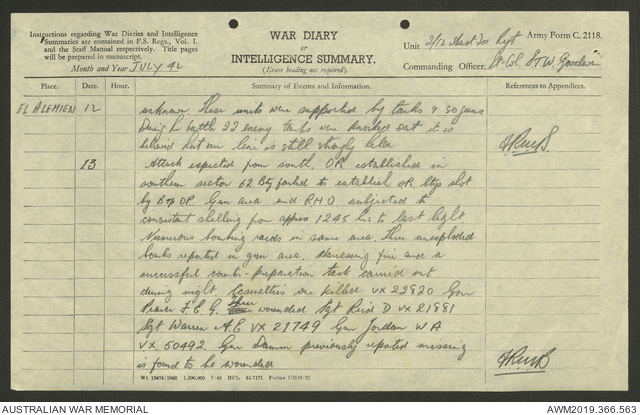 Instructions regarding War Diaries and Intelligence
Summaries are contained in F.S. Regs., Vol. I.
and the Staff Manual respectively. Title pages
will be prepared in manuscript.
Month and Year JULY 42
WAR DIARY
or
INTELLIGENCE SUMMARY.
(Erase heading not required).
Army Form C. 2118.
Unit 2/12 Aust Fd Regt
Commanding Officer Lt-Col. S T W. Goodwin
Place. Date. Hour. Summary of Events and Information. References to Appendices.
EL ALEMIEN 12 unknown these units were supported by tanks & so guns
During the battle 22 enemy tanks were knocked out it is
believed that our line is still strongly held
13 Attack expected from south. OP established in
southern sector 62 Bty failed to establish OP. Btys shot
by B OP Gun area and RHQ subjected to
consistent shelling from approx 1245 hrs to last light
Numerous bombing raids in same area. Three unexploded
bombs reported in gun area. Harassing fire and a
successful counter-preparation task carried out
during night. Casualties one killed VX 22820 Gnr
F. E. G. Three wounded Sgt Reid D VX 21881
Sgt Warren A.E VX 21749 Gnr Jordan W A
VX 50492. Gnr Damm previously reported missing
is found to be wounded
Wt 13474/1805 1,200,000 7/40 BPL 51-7171 Forms C2118/22
AUSTRALIAN WAR MEMORIAL
AWM2019.366.563